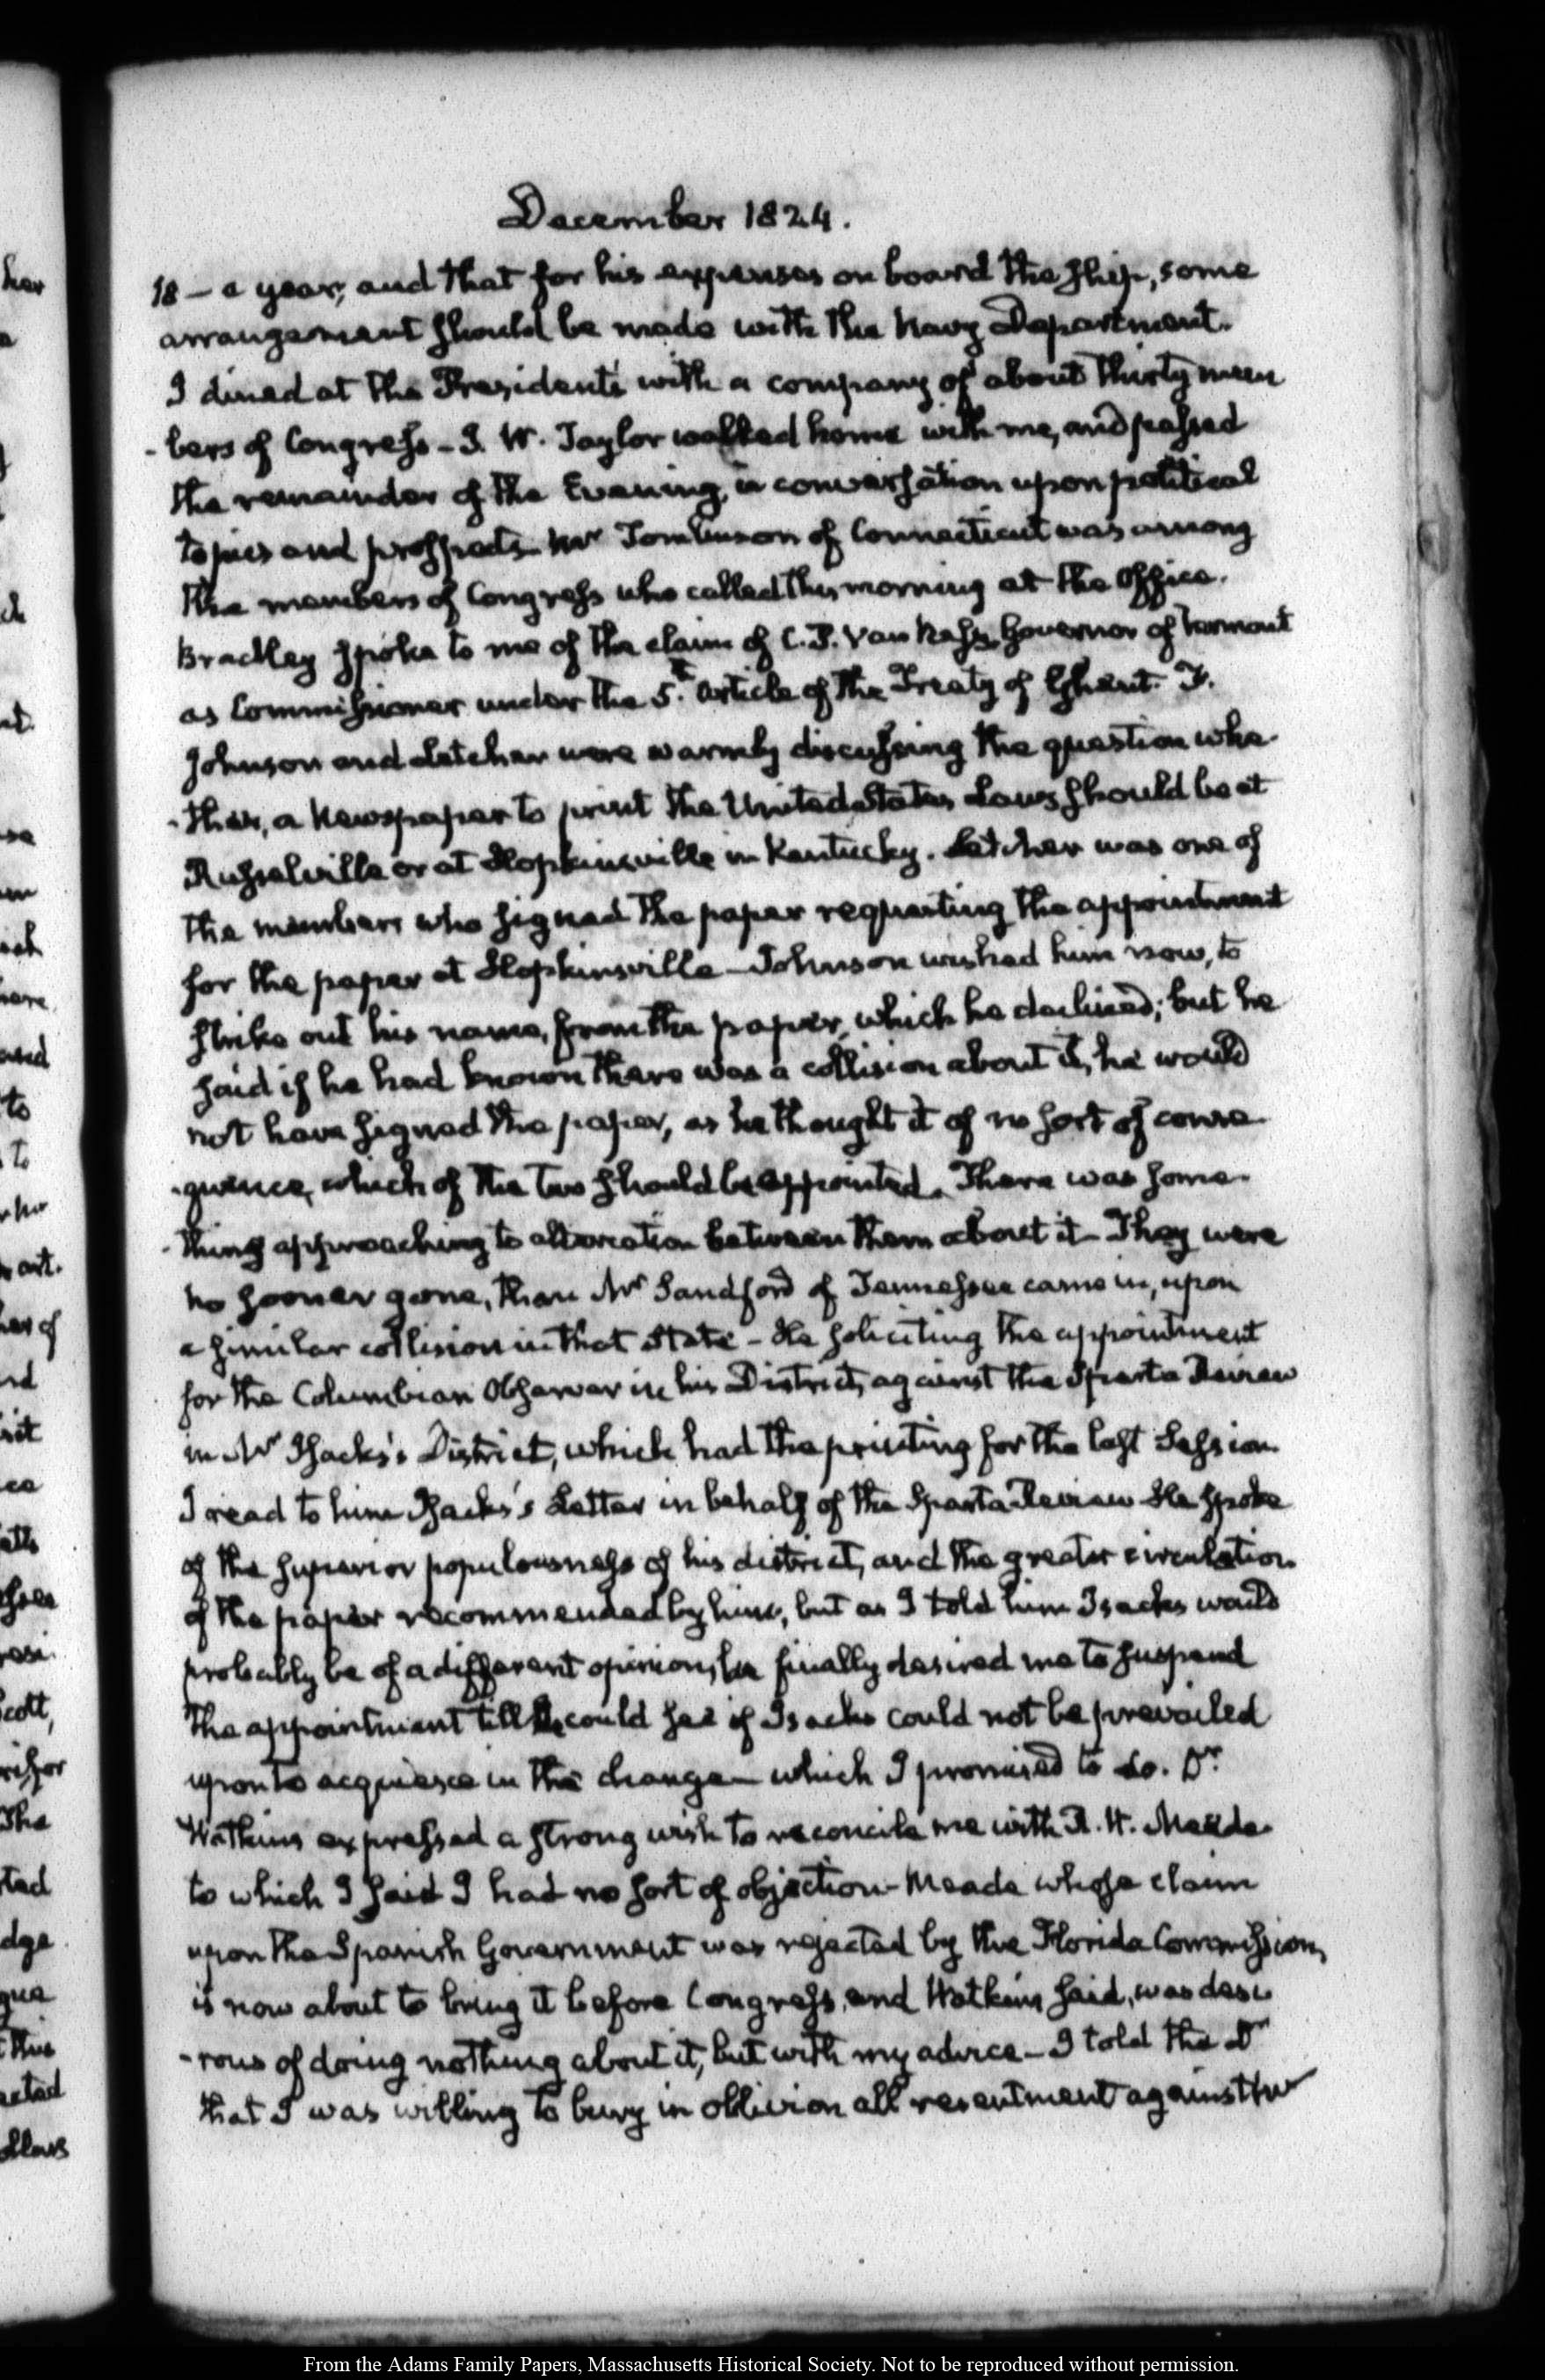 December 1824.
18 — a year, and that for his expenses on board the ship, some
arrangement should be made with the Navy Department.
I dined at the President's with a company of about thirty mem
-bers of Congress - J. W. Taylor walked home with me, and passed
the remainder of the Evening, in conversation upon political
topics and prospects. Mr Tomlinson of Connecticut was among
the members of Congress who called this morning at the Office.
Bradley spoke to me of the claim of C. P. Van Ness, Governor of Vermont
as Commissioner under the 5th Article of the Treaty of Ghent. F.
Johnson and Letcher were warmly discussing the question whe-
-ther, a Newspaper to print the United States Laws should be at
Russelville or at Hopkinsville in Kentucky. Letcher was one of
the members who signed the paper requesting the appointment
for the paper at Hopkinsville - Johnson wished him now, to
strike out his name, from the paper, which he declined; but he
said if he had known there was a collision about it, he would
not have signed the paper, as he thought it of no sort of conse-
-quence, which of the two should be appointed. There was some-
-thing approaching to altercation between them about it - They were
no sooner gone, than Mr Sandford of Tennessee came in, upon
a similar collision in that State - He soliciting the appointment
for the Columbian Observer in his District, against the Sparta Review
in Mr Isacks's District, which had the printing for the last Session.
I read to him Isacks's Letter in behalf of the Sparta Review He spoke
of the superior populousness of his district, and the greater circulation
of the paper recommended by him, but as I told him Isacks would
probably be of a different opinion, he finally desired me to suspend
the appointment till he could see if Isacks could not be prevailed
upon to acquiesce in the change - which I promised to do. Dr
Watkins expressed a strong wish to reconcile me with R. W. Meade
to which I said I had no sort of objection - Meade whose claim
upon the Spanish Government was rejected by the Florida Commission,
is now about to bring it before Congress, and Watkins said, was desi
-rous of doing nothing about it, but with my advice - I told the Dr
that I was willing to bury in oblivion all resentment against the
her
to
and
to
of
Scott,
The
this
From the Adams Family Papers, Massachusetts Historical Society. Not to be reproduced without permission.